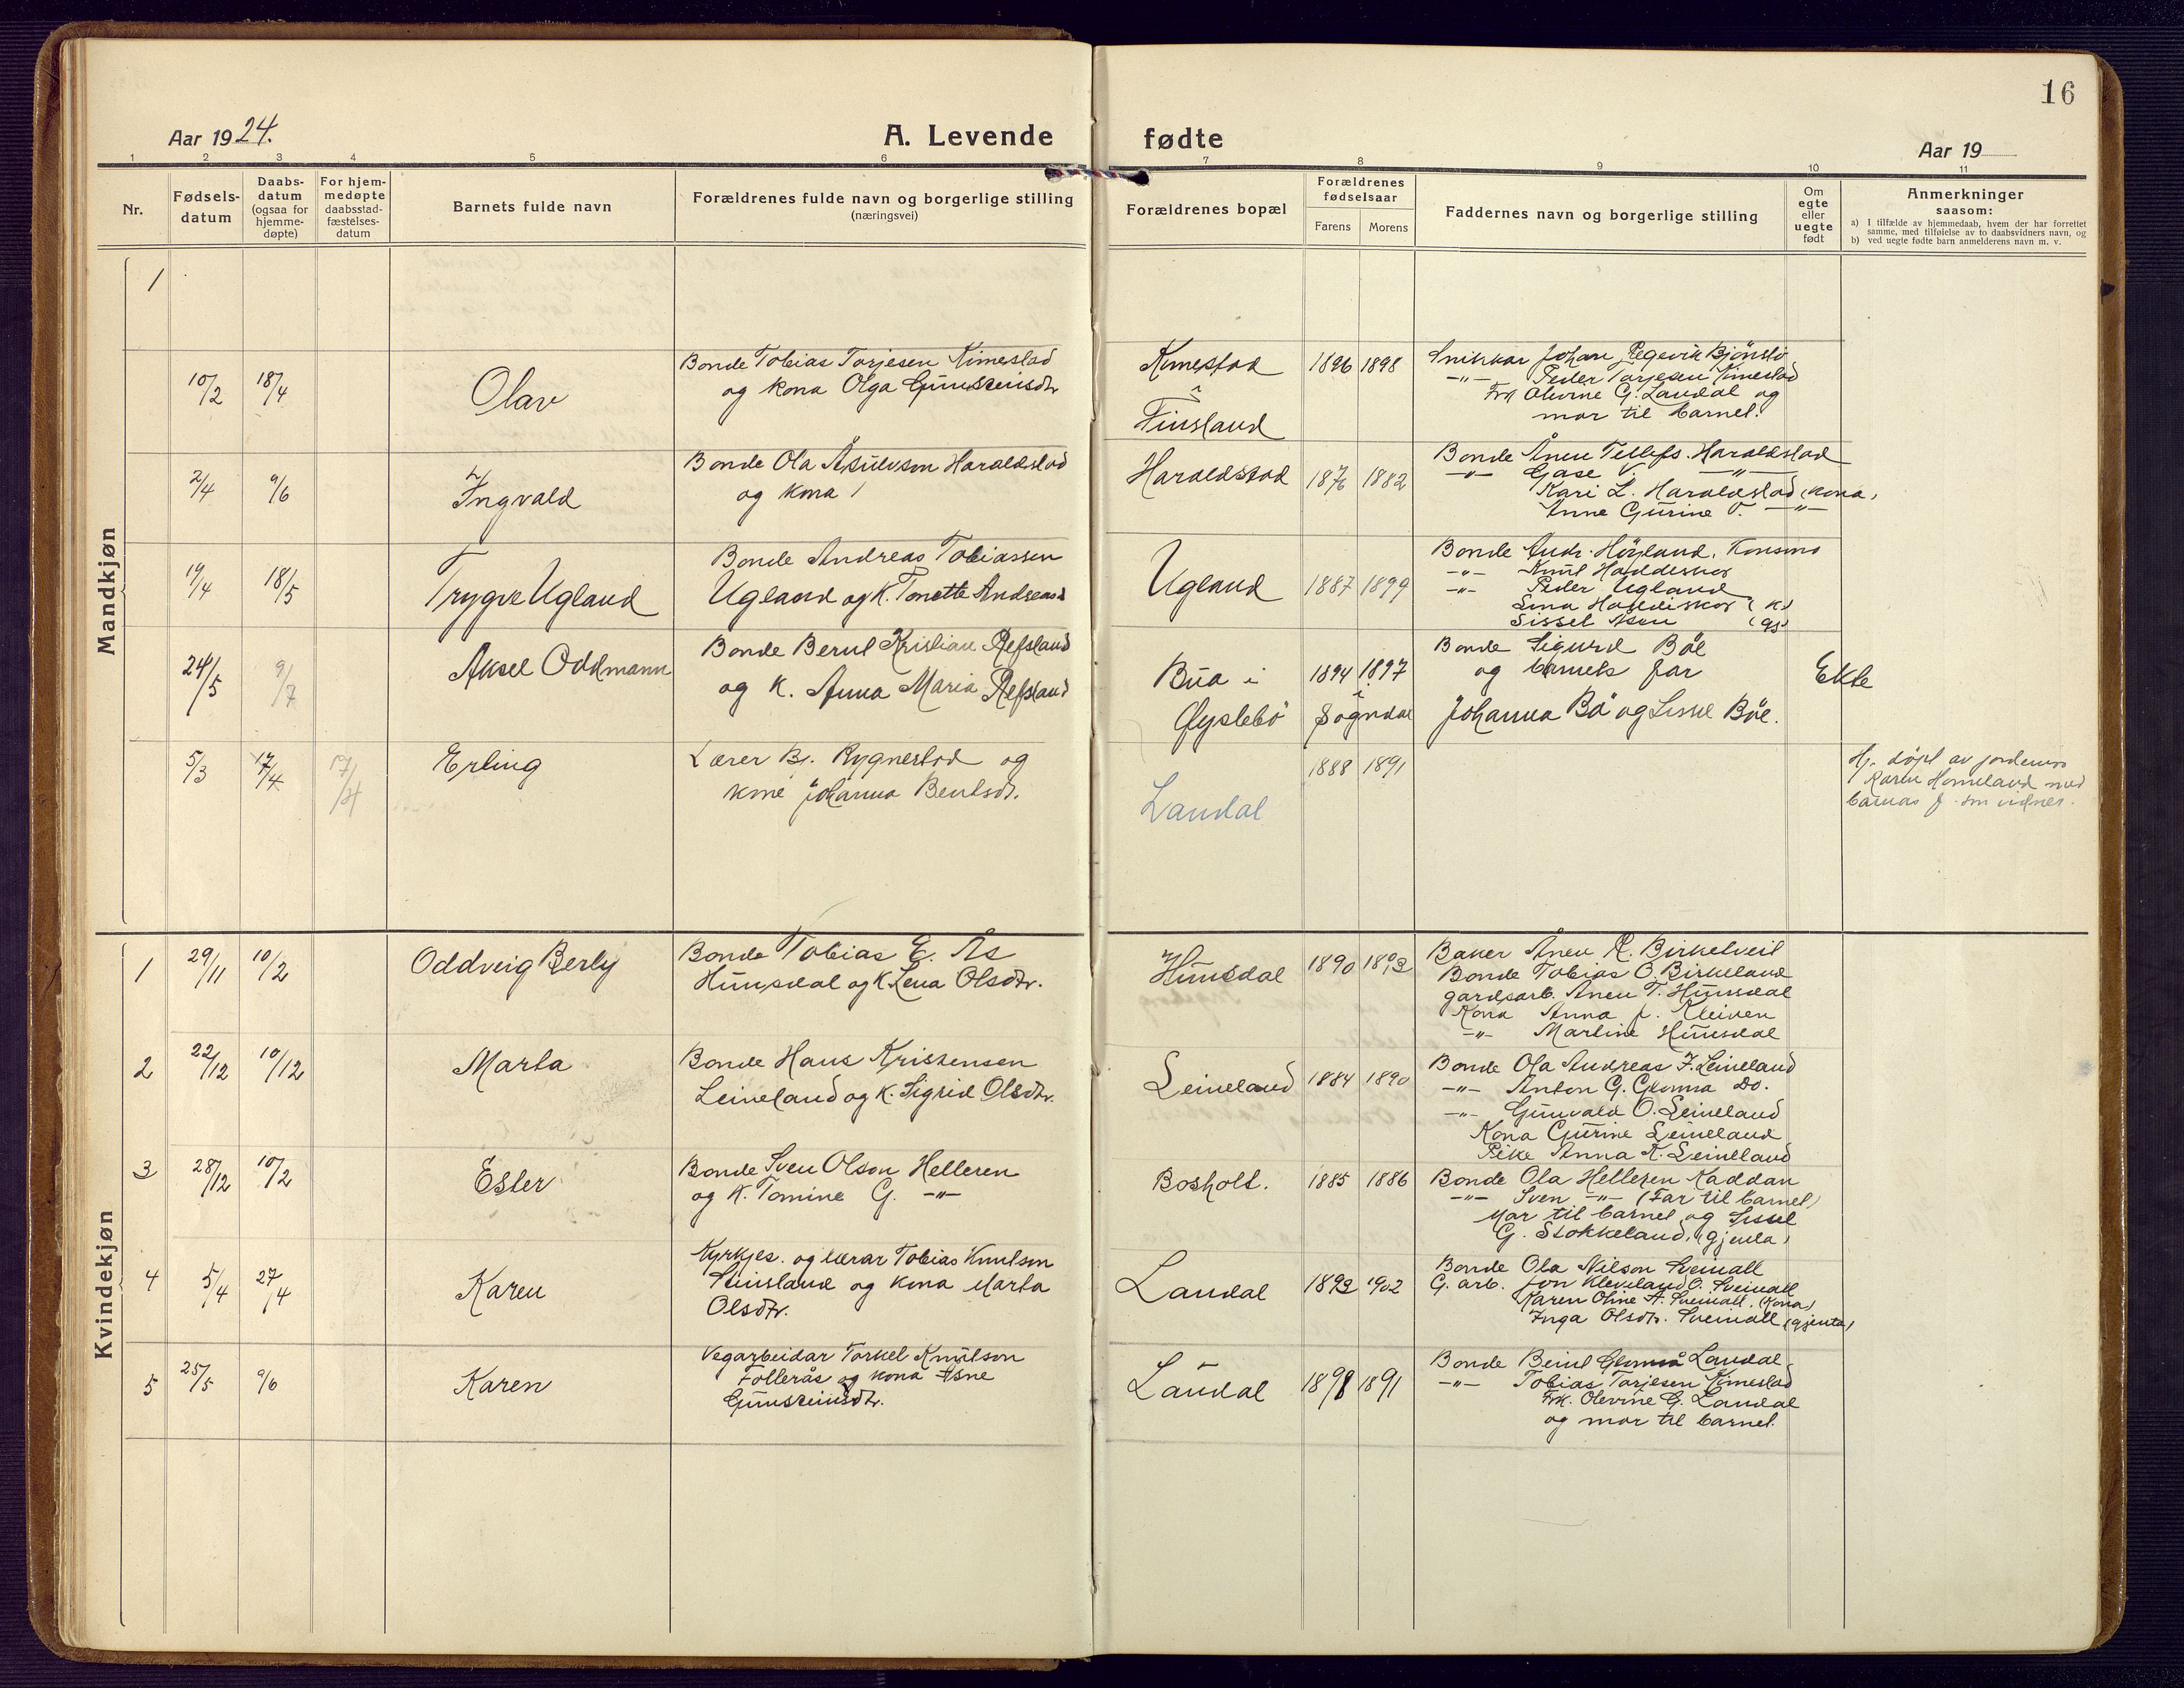 16
Aar 1924.
A. Levende fødte
Aar 19
1 2 3 4 5 6 7 8 9 10 11
Nr.
Fødsels-
datum
Daabs-
datum
(ogsaa for
hjemme-
døpte)
For hjem-
medøpte
daabsstad-
fæstelses-
datum
Barnets fulde navn
Forældrenes fulde navn og borgerlige stilling
(næringsvei)
Forældrenes bopæl
Forældrenes
fødselsaar
Farens Morens
Faddernes navn og borgerlige stilling
Om
egte
eller
uegte
født
Anmerkninger
saasom:
a) I tilfælde av hjemmedaab, hvem der har forrettet
samme, med tilføielse av to daabsvidners navn, og
b) ved uegte fødte barn anmelderens navn m. v.
Mandkjøn
1
10/2 18/4
Olav
Bonde Tobias Torjesen Kimestad
og kona Olga Gunsteinsdtr
Kimestad
i
Finsland
1896 1898
Snikkar Johan Regevik Bjönstö
-"- Peder Torjesen Kimestad
Frk Olevine G. Laudal og
mor til barnet.
2/4 9/6
Ingvald
Bonde Ola Asulvson Haraldstad
og kona
Haraldstad
1876 1882
Bonde Ånen Tellefs. Haraldstad
-"- Gase V. -"-
Kari L. Haraldstad (kona)
Anne Gurine V. -"-
19/4 18/5
Trygve Ugland
Bonde Andreas Tobiassen
Ugland og K. Tonette Andreasd
Ugland
1887 1899
Bonde Andr. Höyland, Konsmo
-"- Knut Haddeskog
-"- Peder Ugland
Lina (K)
Sissel (gj)
24/5 9/7
Aksel Oddmann
Bonde Bernt Kristian Refsland
og K. Anna Maria Refsland
Bua i
Øyslebö
1894 1897
i
Sogndal
Bonde Sigurd Böe
og barnets far
Johanna Bö og Lisse Böe.
Ekte
5/3 17/4 17/4
Erling
Lærer Bj. Rygnestad og
kone Johanna Bentsdr.
Laudal
1888 1891
Hj. döpt av jordemor
Karen Homeland med
barnas f. som vidner.
Kvindekjøn
1 29/11 10/2
Oddveig Berly
Bonde Tobias E. Ås
Hunsdal og K. Lena Olsdtr.
Hunsdal
1890 1893
Baker Ånen R. Birkelveit
Bonde Tobias O. Birkeland
gardsarb. Ånen T. Hunsdal
Kona Anna J. Kleiven
-"- Martine Hunsdal
2 22/12 10/12
Marta
Bonde Hans Kristensen
Leineland og K. Sigrid Olsdtr.
Leineland
1884 1890
Bonde Ola Andreas F. Leineland
-"- Anton G. Glomsa Do.
-"- Gunvald O. Leineland
Kona Gurine Leineland
Pike Anna K. Leineland
3 28/12 10/2
Ester
Bonde Sven Olson Helleren
og K. Tomine G. -"-
Bosholt.
1885 1886
Bonde Ola Helleren Kaddan
-"- Sven -"- (Far til barnet)
Mor til barnet og Sissel
G. Stokkeland. (gjenta)
4 5/4 27/4
Karen
Kyrkjes. og lærar Tobias Knutson
og kona Marta
Olsdtr.
Laudal
1893 1902
Bonde Ola Nilson Sveinall
G. arb. Jon Kleveland O. Sveinall
Karen Oline A. Sveinall (Kona)
Inga Olsdtr. Sveinall (gjenta)
5 25/5 9/6
Karen
Vegarbeidar Torkel Knutson
Follerås og kona Åsne
Gunsteinsdtr.
Laudal
1898 1891
Bonde Beint Laudal
-"- Tobias Torjesen Kimestad
Frk. Olevine G. Laudal
og mor til barnet.